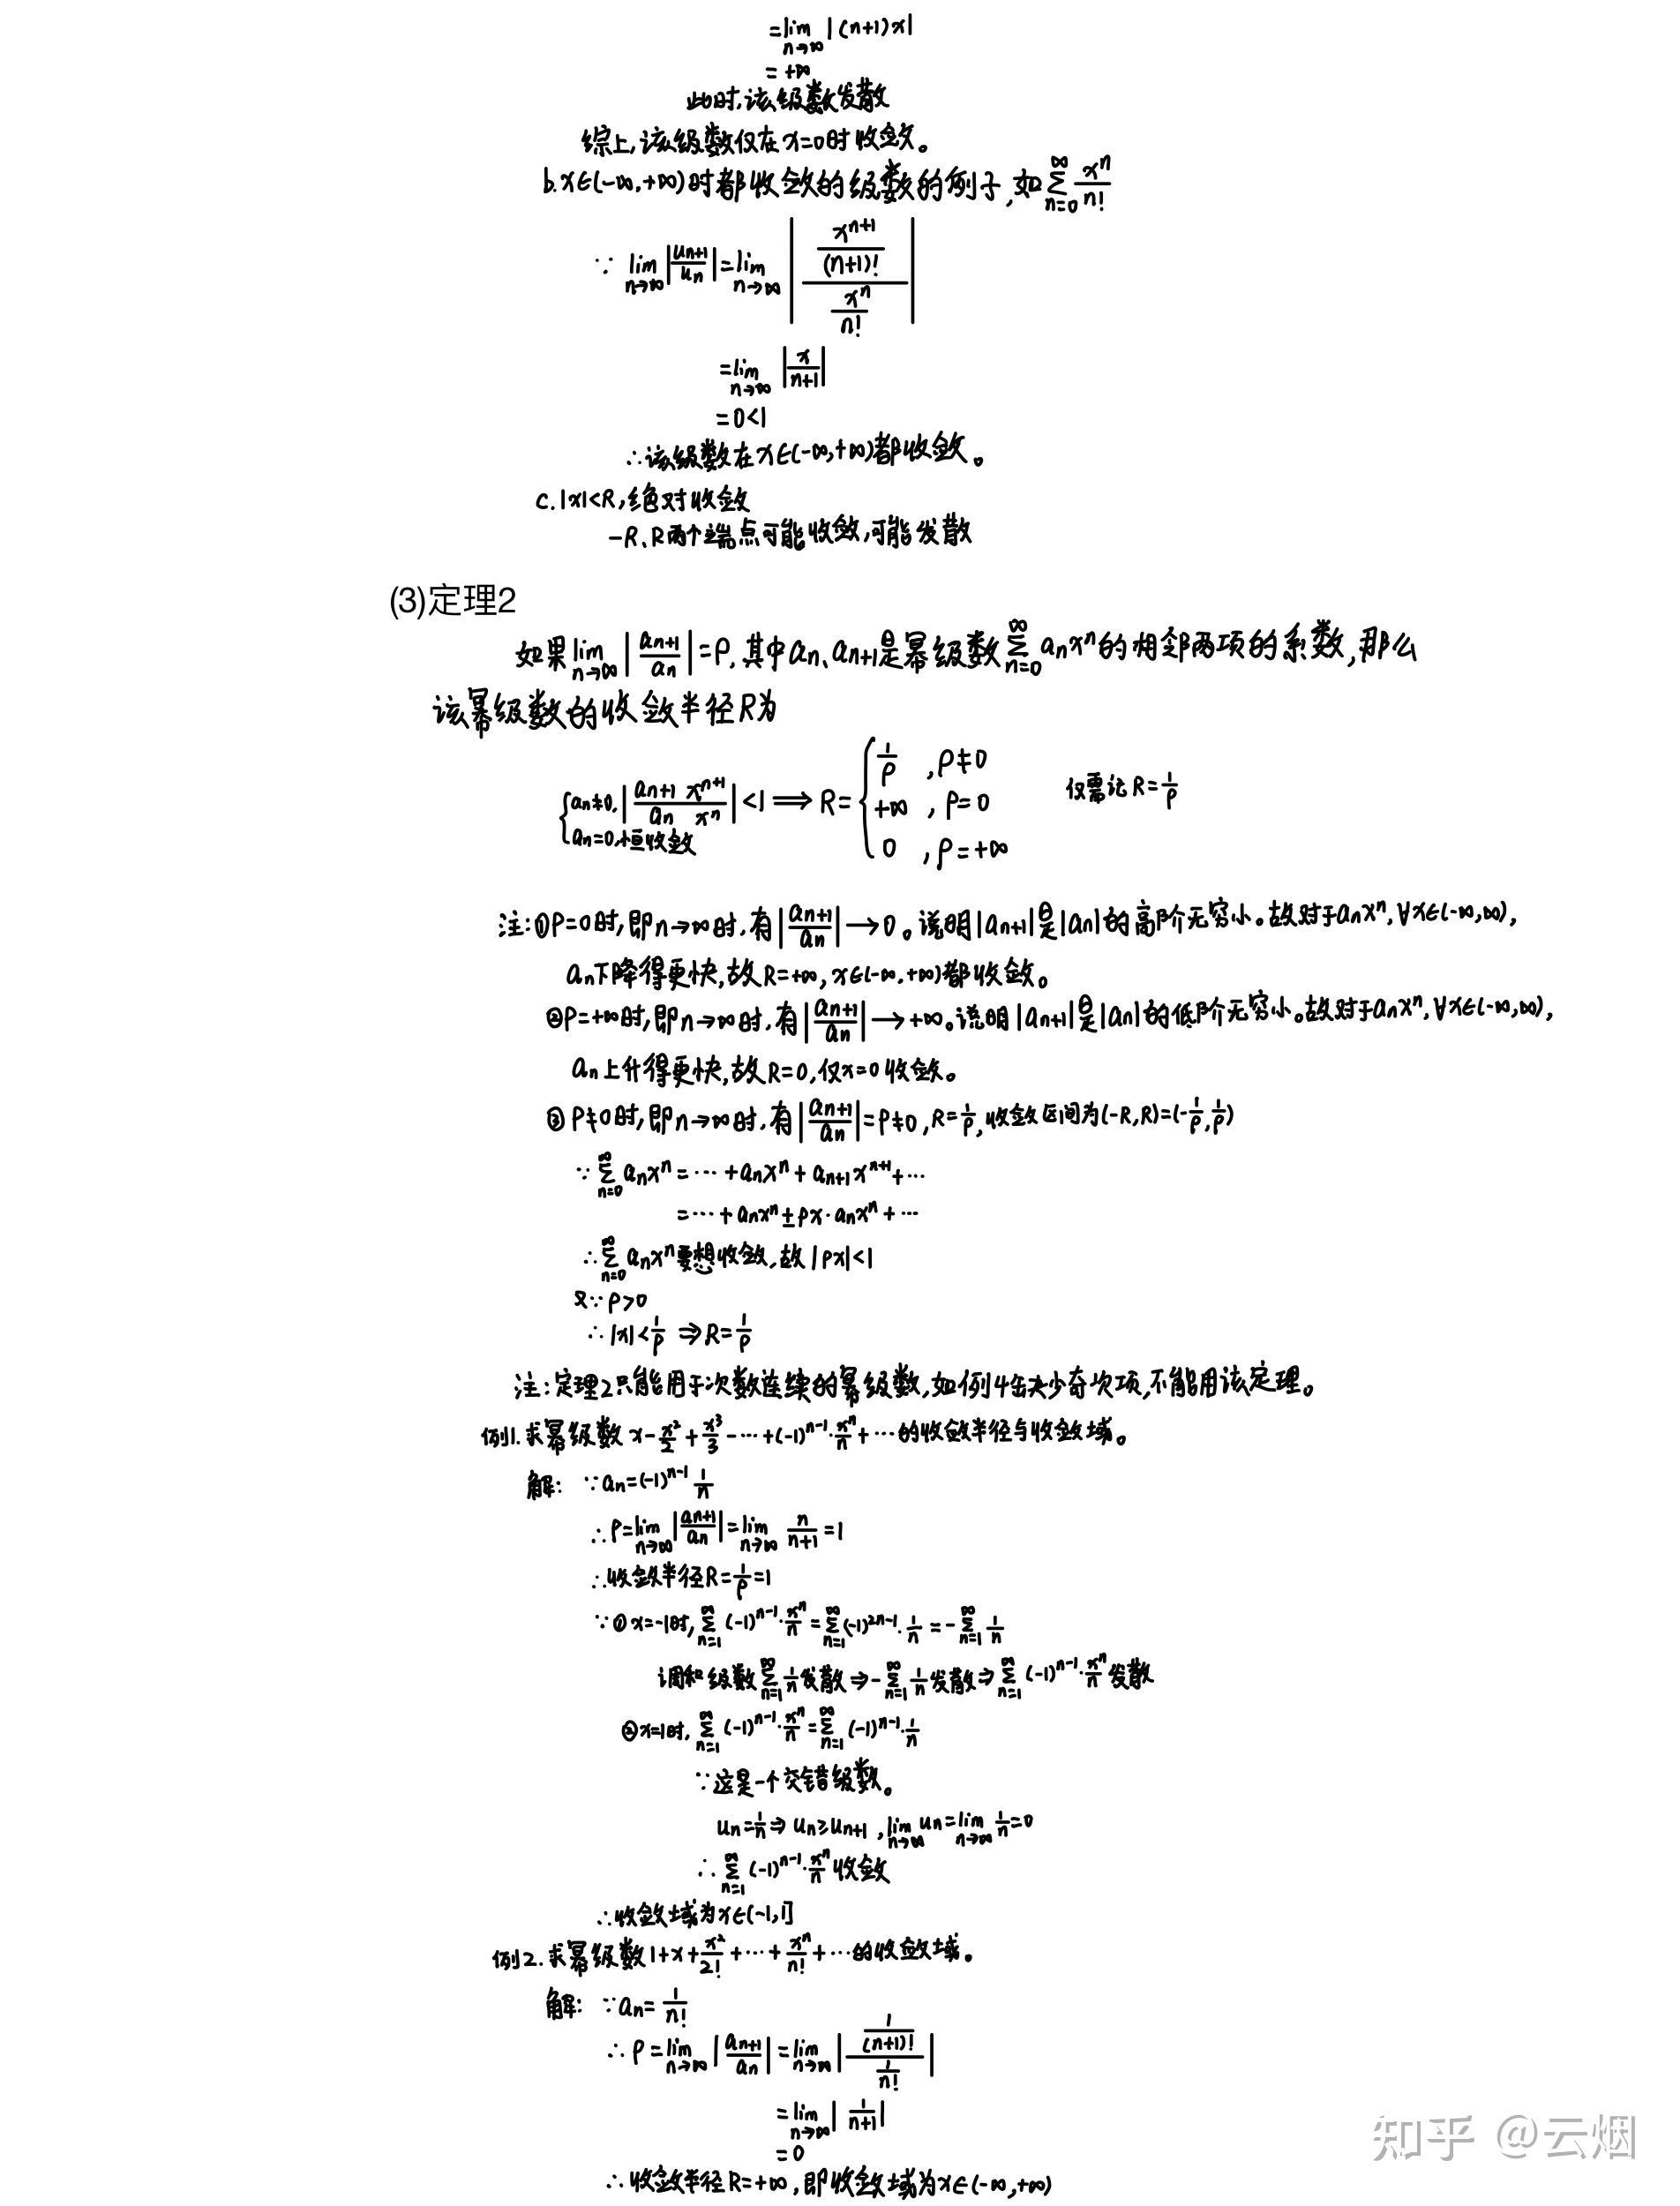 =lim n→∞ |(n+1)x|
=+∞
此时,该级数发散
综上,该级数仅在x=0时收敛。
b.x∈(-∞,+∞)时都收敛的级数的例子,如∑_{n=0}^{∞} x^n/n!
∵ lim n→∞ |u_{n+1}/u_n|=lim n→∞ |(x^{n+1}/(n+1)!)/(x^n/n!)|
=lim n→∞ |x/(n+1)|
=0<1
∴该级数在x∈(-∞,+∞)都收敛。
c.|x|<R,绝对收敛
-R、R两个端点可能收敛,可能发散
(3)定理2
如果lim n→∞ |a_{n+1}/a_n|=ρ,其中a_n、a_{n+1}是幂级数∑_{n=0}^{∞} a_n x^n的相邻两项的系数,那么
该幂级数的收敛半径R为
{a_n≠0,|a_{n+1}x^{n+1}/(a_n x^n)|<1 ⟹ R={1/ρ ,ρ≠0 仅需记R=1/ρ
a_n=0,恒收敛 +∞ ,ρ=0
0 ,ρ=+∞
注:①ρ=0时,即n→∞时,有|a_{n+1}/a_n|→0。说明|a_{n+1}|是|a_n|的高阶无穷小。故对于a_n x^n,∀x∈(-∞,∞),
a_n下降得更快,故R=+∞,x∈(-∞,+∞)都收敛。
②ρ=+∞时,即n→∞时,有|a_{n+1}/a_n|→+∞。说明|a_{n+1}|是|a_n|的低阶无穷小。故对于a_n x^n,∀x∈(-∞,∞),
a_n上升得更快,故R=0,仅x=0收敛。
③ρ≠0时,即n→∞时,有|a_{n+1}/a_n|=ρ≠0,R=1/ρ,收敛区间为(-R,R)=(-1/ρ,1/ρ)
∵∑_{n=0}^{∞} a_n x^n=⋯+a_n x^n+a_{n+1}x^{n+1}+⋯
=⋯+a_n x^n±ρx·a_n x^n+⋯
∴∑_{n=0}^{∞} a_n x^n要想收敛,故|ρx|<1
又∵ρ>0
∴|x|<1/ρ ⇒R=1/ρ
注:定理2只能用于次数连续的幂级数,如例4缺少奇次项,不能用该定理。
例1.求幂级数x-x²/2+x³/3-⋯+(-1)^{n-1}·x^n/n+⋯的收敛半径与收敛域。
解: ∵a_n=(-1)^{n-1} 1/n
∴ρ=lim n→∞ |a_{n+1}/a_n|=lim n→∞ n/(n+1)=1
∴收敛半径R=1/ρ=1
∵①x=-1时,∑_{n=1}^{∞} (-1)^{n-1}·x^n/n=∑_{n=1}^{∞} (-1)^{2n-1}·1/n=-∑_{n=1}^{∞} 1/n
调和级数∑_{n=1}^{∞} 1/n发散⇒-∑_{n=1}^{∞} 1/n发散⇒∑_{n=1}^{∞} (-1)^{n-1}·x^n/n发散
②x=1时,∑_{n=1}^{∞} (-1)^{n-1}·x^n/n=∑_{n=1}^{∞} (-1)^{n-1}·1/n
∵这是一个交错级数。
u_n=1/n⇒u_n≥u_{n+1},lim n→∞ u_n=lim n→∞ 1/n=0
∴∑_{n=1}^{∞} (-1)^{n-1}·x^n/n收敛
∴收敛域为x∈(-1,1]
例2.求幂级数1+x+x²/2!+⋯+x^n/n!+⋯的收敛域。
解: ∵a_n=1/n!
∴ρ=lim n→∞ |a_{n+1}/a_n|=lim n→∞ |(1/(n+1)!)/(1/n!)|
=lim n→∞ |1/(n+1)|
=0
∴收敛半径R=+∞,即收敛域为x∈(-∞,+∞)
知乎 @云烟